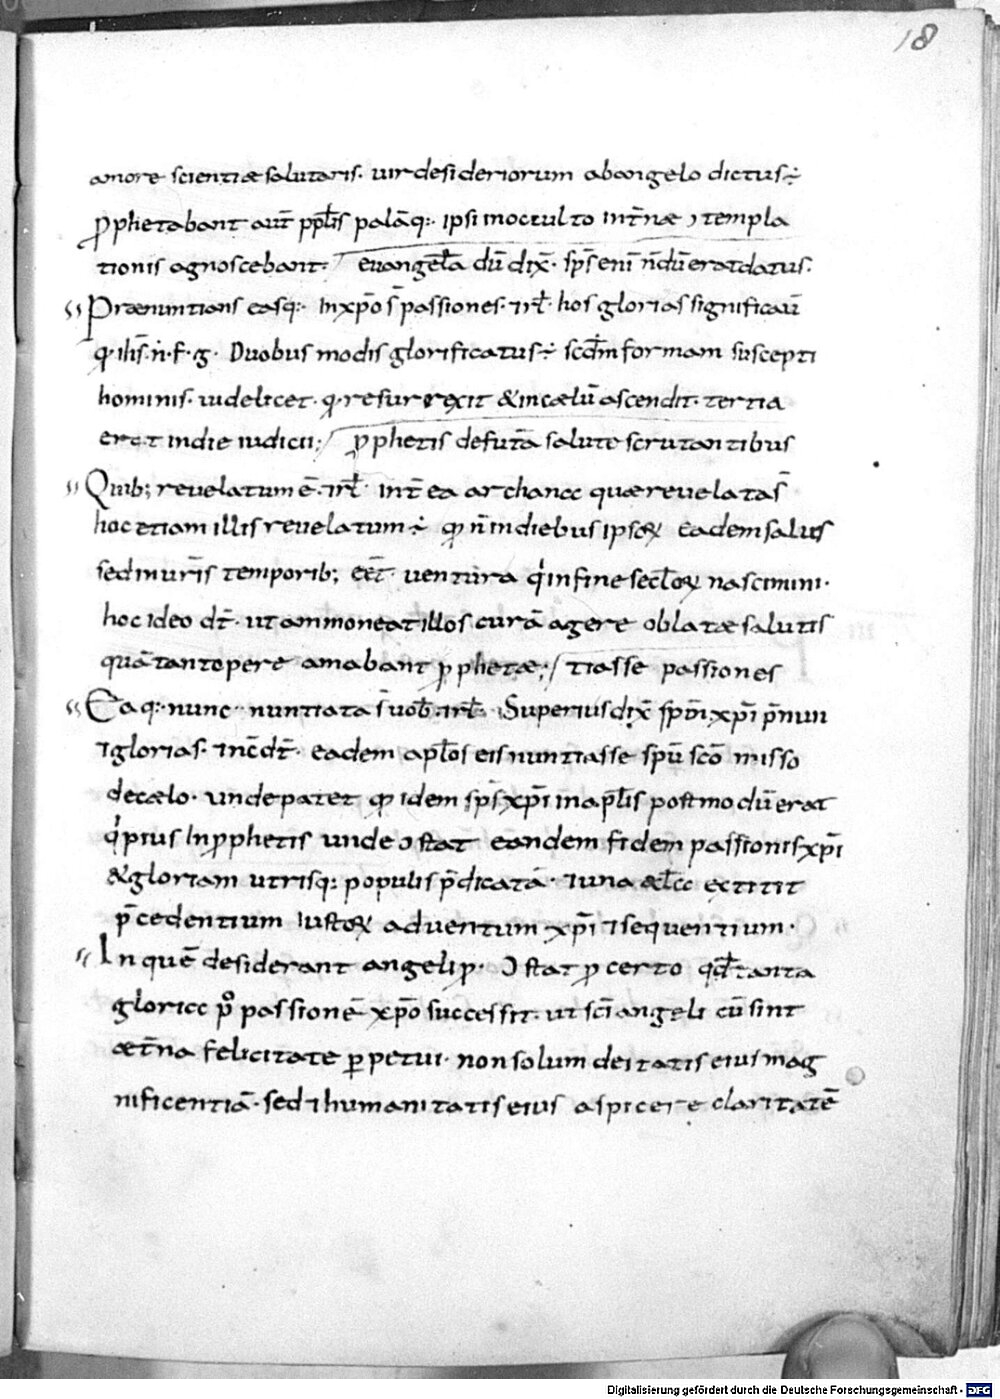 18
amore scientiæ salutaris. uir desideriorum ab angelo dictus÷
ꝓphetabant aut̄ pp̄lis palāq:. ipsi in occulto int̄næ ↄtempla
tionis agnoscebant. euangel̄a dū dix̄. sp̄s eni n̄dū erat datus.
Prænuntians easq:. in xp̄o s̄ passiones. ⁊rł. hos glorias significaū
q. ih̄s. n̄. f. g. Duobus modis glorificatus÷ scd̄m formam suscepti
hominis. uidelicet. q. resurrexit & in cælū ascendit. tertia
erat in die iudicii; ꝓphetis de futa salute scrutantibus
Quib; reuelatum ē. ⁊rł. int̄ ea archana quæ reuelata s̄
hoc etiam illis reuelatum÷ qđ n̄ in diebus ipsoꝝ eadem salus
sed in ur̄is temporib; eēt uentura q̇ in fine secl̄oꝝ nascimini.
hoc ideo dt̄. ut ammoneat illos curā agere oblatæ salutis
quā tantopere amabant ꝓphetæ; tiasse passiones
Ea q:. nunc nuntiata s̄ uob̄. ⁊rł. Superius dix̄ sp̄m xp̄i p̄nun
⁊ glorias. n̄c dt̄. eadem aplōs eis nuntiasse spū scō misso
de cælo. unde patet qđ idem sp̄s xp̄i in ap̄lis postmodū erat
q̇ prius in ꝓphetis unde ↄstat eandem fidem passionis xp̄i
& gloriam utrisq: populis p̄dicatā. ⁊ una æccl̄a extitit
p̄cedentium iustoꝝ aduentum xp̄i ⁊ sequentium.
In quē desiderant angeli ꝓ. ↄstat ꝓ certo qđ tanta
gloria p̊ passionē xp̄o successit. ut sc̄i angeli cū sint
æt̄na felicitate ꝑpetui. non solum deitatis eius mag
nificentiā. sed ⁊ humanitatis eius aspicere claritatē
Digitalisierung gefördert durch die Deutsche Forschungsgemeinschaft - DFG